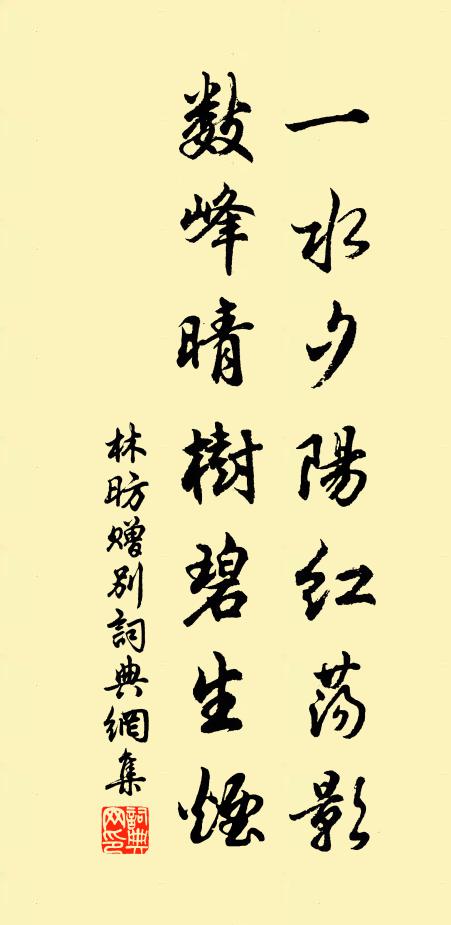 一水夕陽紅蕩影
數峰晴樹碧生煙
林昉贈別詞典網集
詞典網印